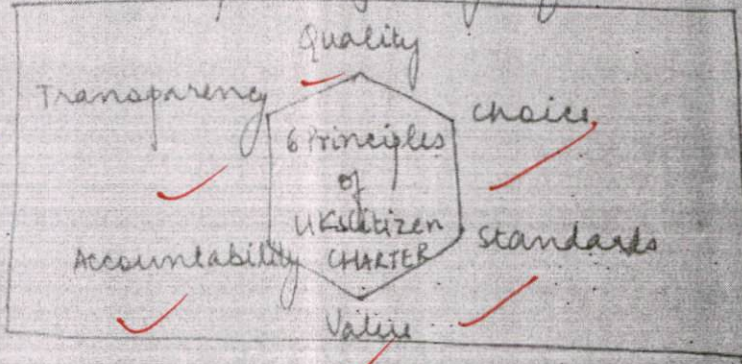 Quality
Transparency
Choice
6 Principles
of
UK's Citizen
CHARTER
Accountability
Standards
Value